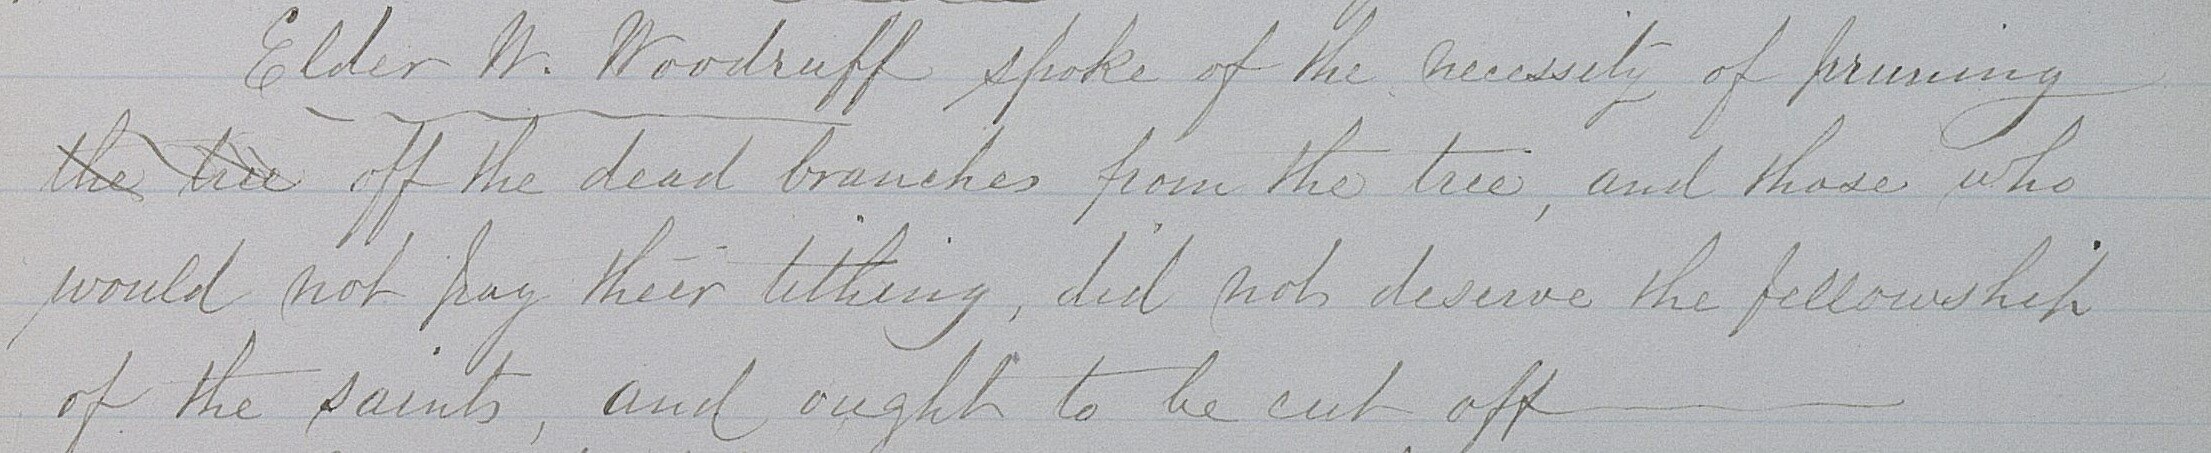 Elder W. Woodruff spoke of the necessity of pruning
the tree off the dead branches from the tree, and those who
would not pay their tithing, did not deserve the fellowship
of the saints, and ought to be cut off